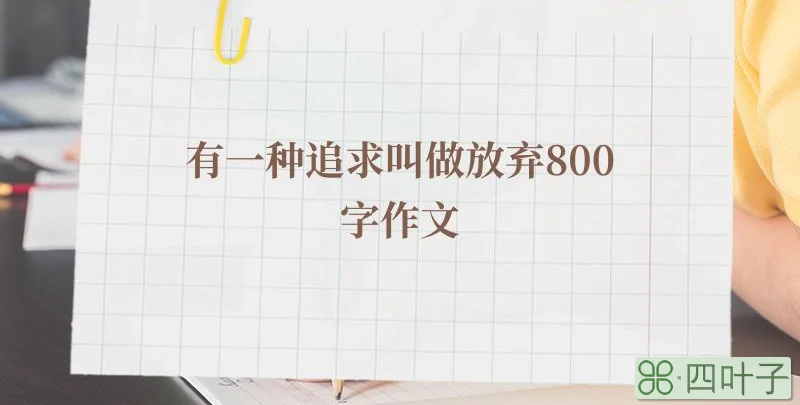 有一种追求叫做放弃800
字作文
四叶子